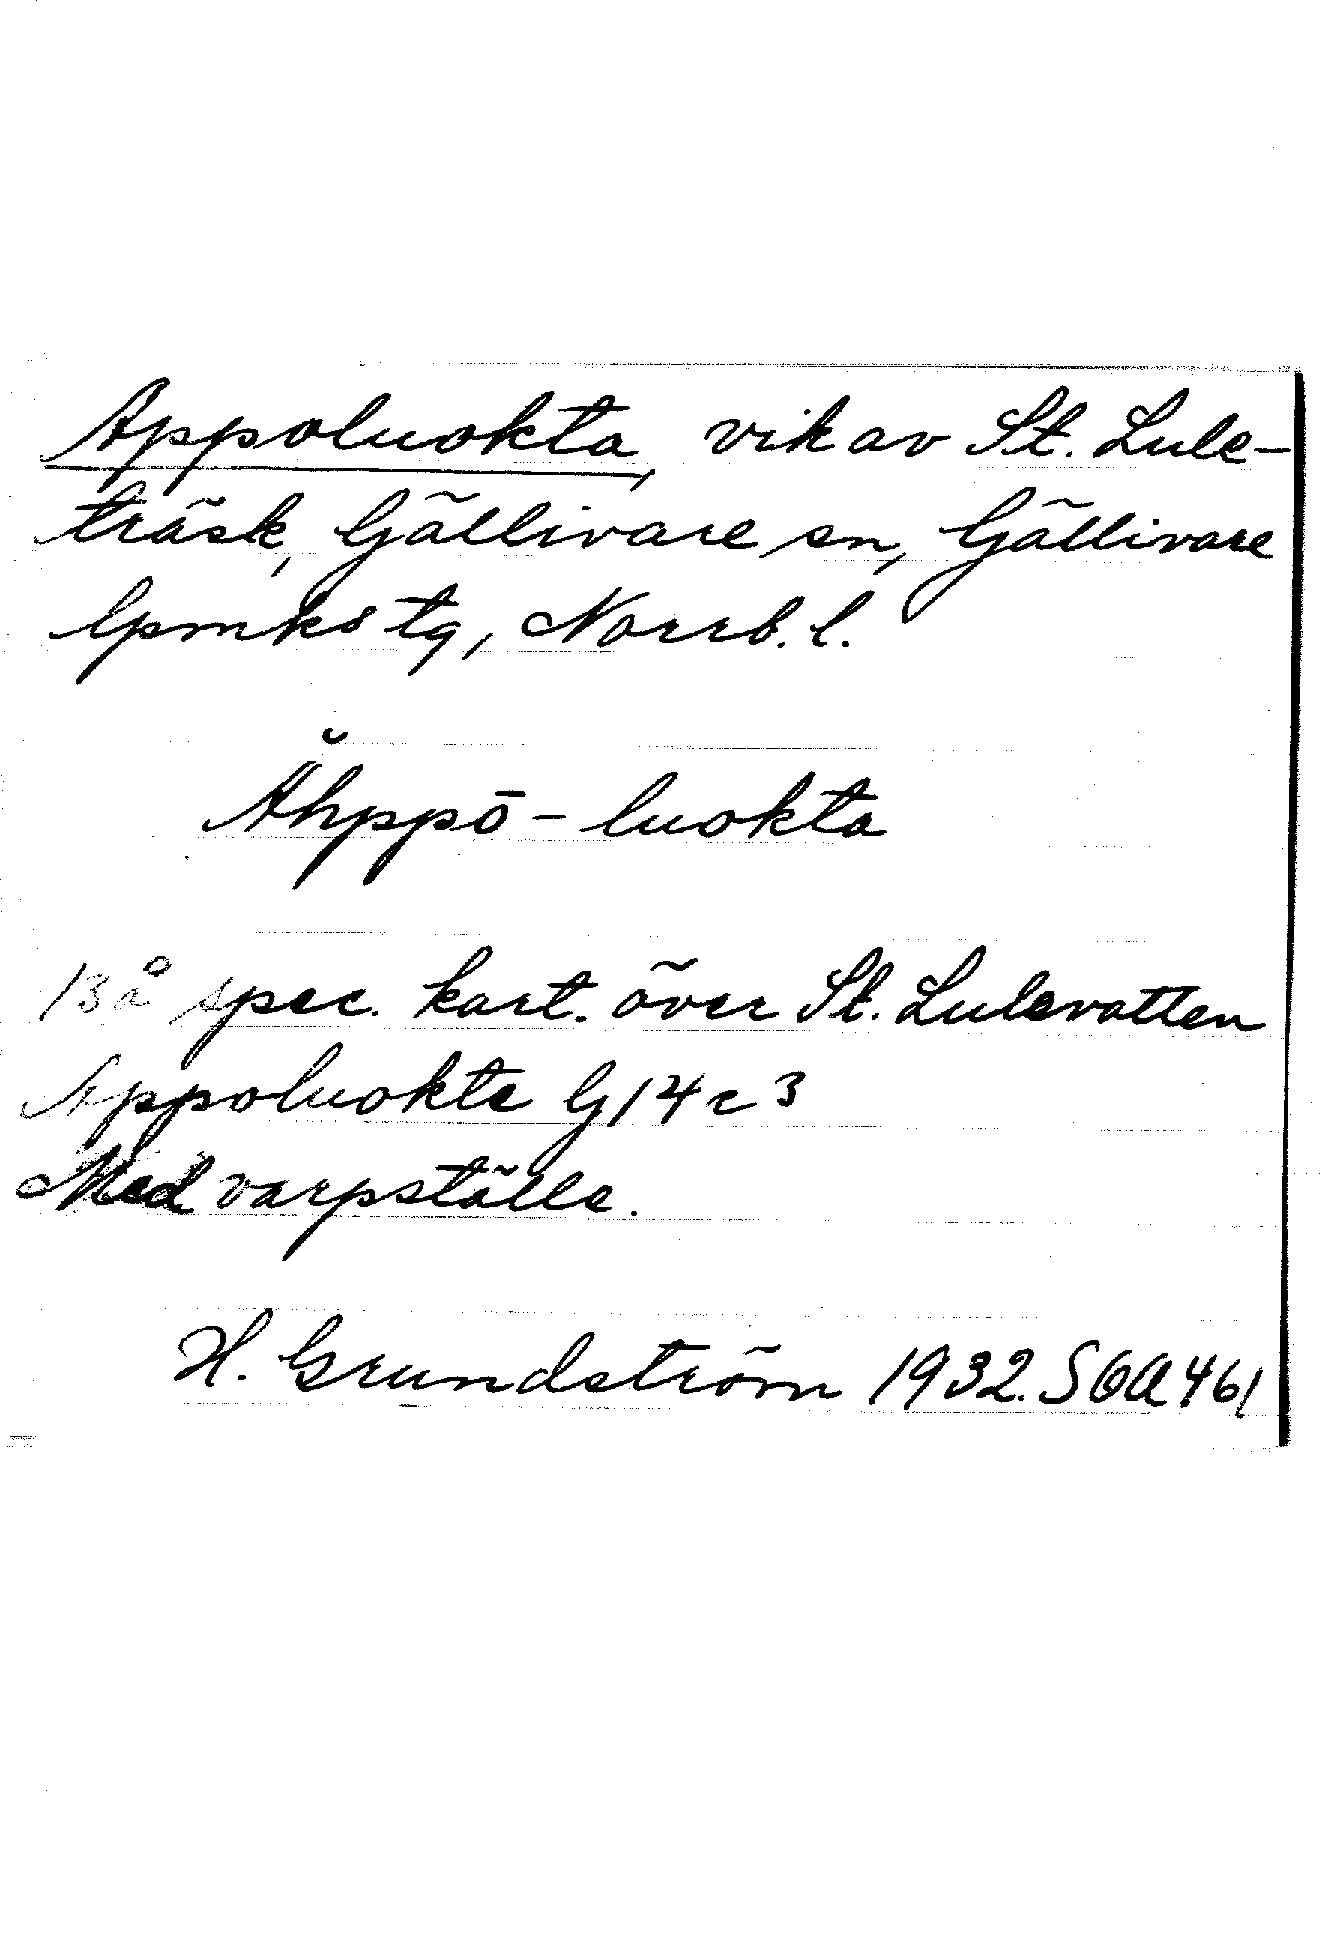 Appoluokta, vik av St. Lule-
träsk, Gällivare sn, Gällivare
lpmks tg, Norrb. l.
Ähppō-luokta
13å spec. kart. över St. Lulevatten
Appoluokta G14c3
Med varpställe.
H. Grundström 1932. SOA 461